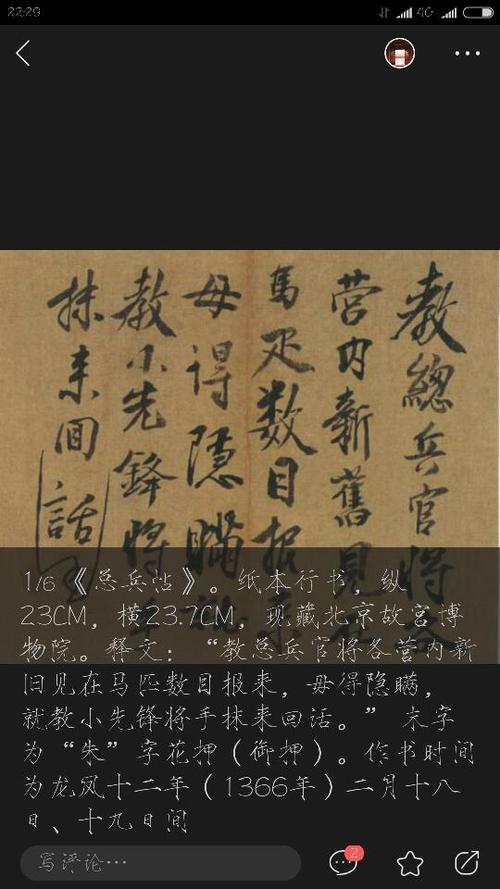 22:29
4G
教總兵官將各
营内新舊見在
馬疋数目报来
毋得隱瞒就
教小先鋒將手
抹来囬話
1/6《总兵帖》。纸本行书，纵
23CM，横23.7CM，现藏北京故宫博
物院。释文：“教总兵官将各营内新
旧见在马匹数目报来，毋得隐瞒，
就教小先锋将手抹来回话。”末字
为“朱”字花押（御押）。作书时间
为龙凤十二年（1366年）二月十八
日、十九日间
写评论…
2